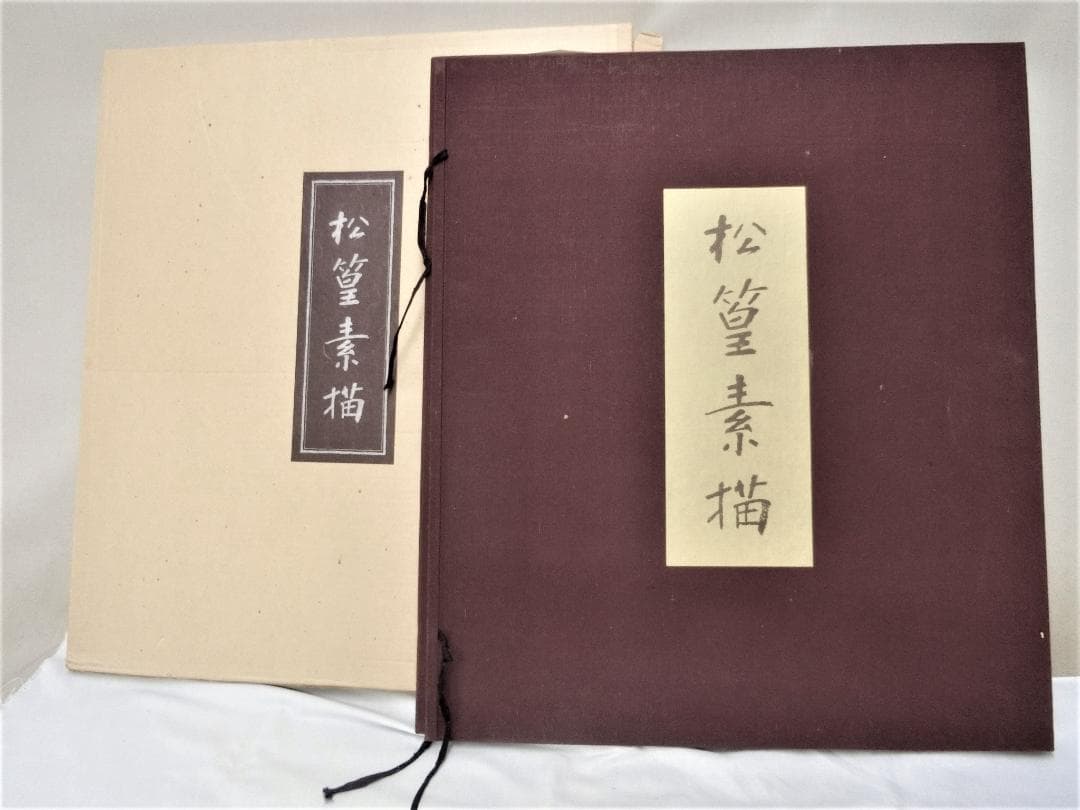 松篁素描
松篁素描